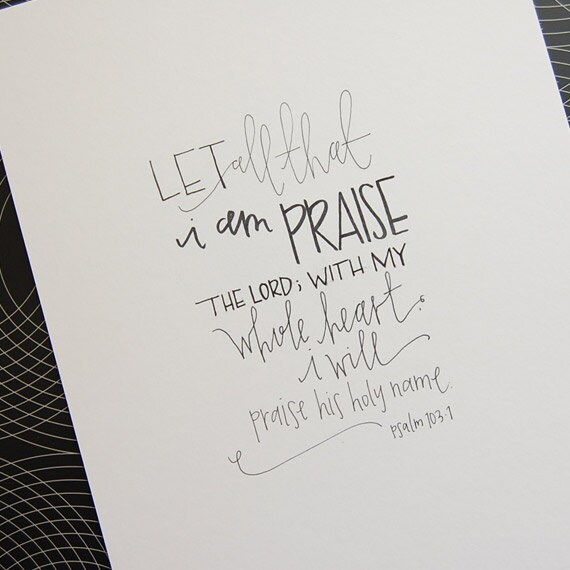 LET all that
i am PRAISE
THE LORD; WITH MY
whole heart.
i will
praise his holy name.
psalm 103:1